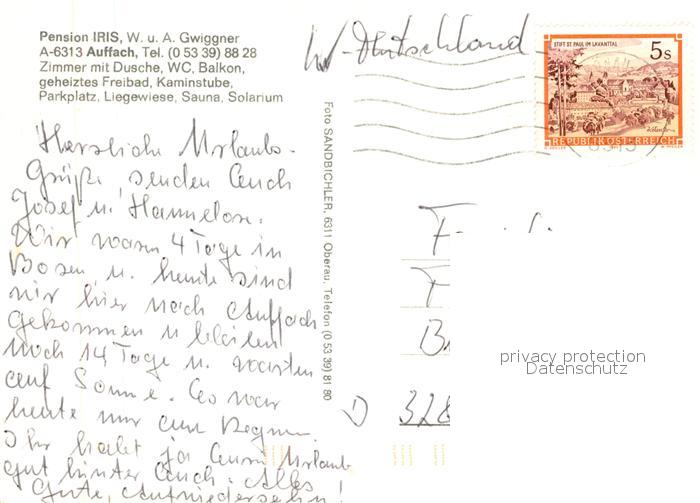 Pension IRIS, W. u. A. Gwiggner
A-6313 Auffach, Tel. (0 53 39) 88 28
Zimmer mit Dusche, WC, Balkon,
geheiztes Freibad, Kaminstube,
Parkplatz, Liegewiese, Sauna, Solarium
W-Deutschland
STIFT ST. PAUL IM LAVANTTAL
5s
REPUBLIK ÖSTERREICH
Foto SANDBICHLER, 6311 Oberau, Telefon (0 53 39) 81 80
Herzliche Urlaubs-
Grüße, senden Euch
Josef u. Hannelore.
Wir waren 4 Tage in
Bozen u. heute sind
wir hier nach Auffach
gekommen u bleiben
noch 14 Tage u. warten
auf Sonne. Es war
heute nur am Regnen.
Ihr habt ja Euren Urlaub
gut hinter Euch. Alles
Gute, Aufwiedersehn!
F
F
B
D 328
privacy protection
Datenschutz